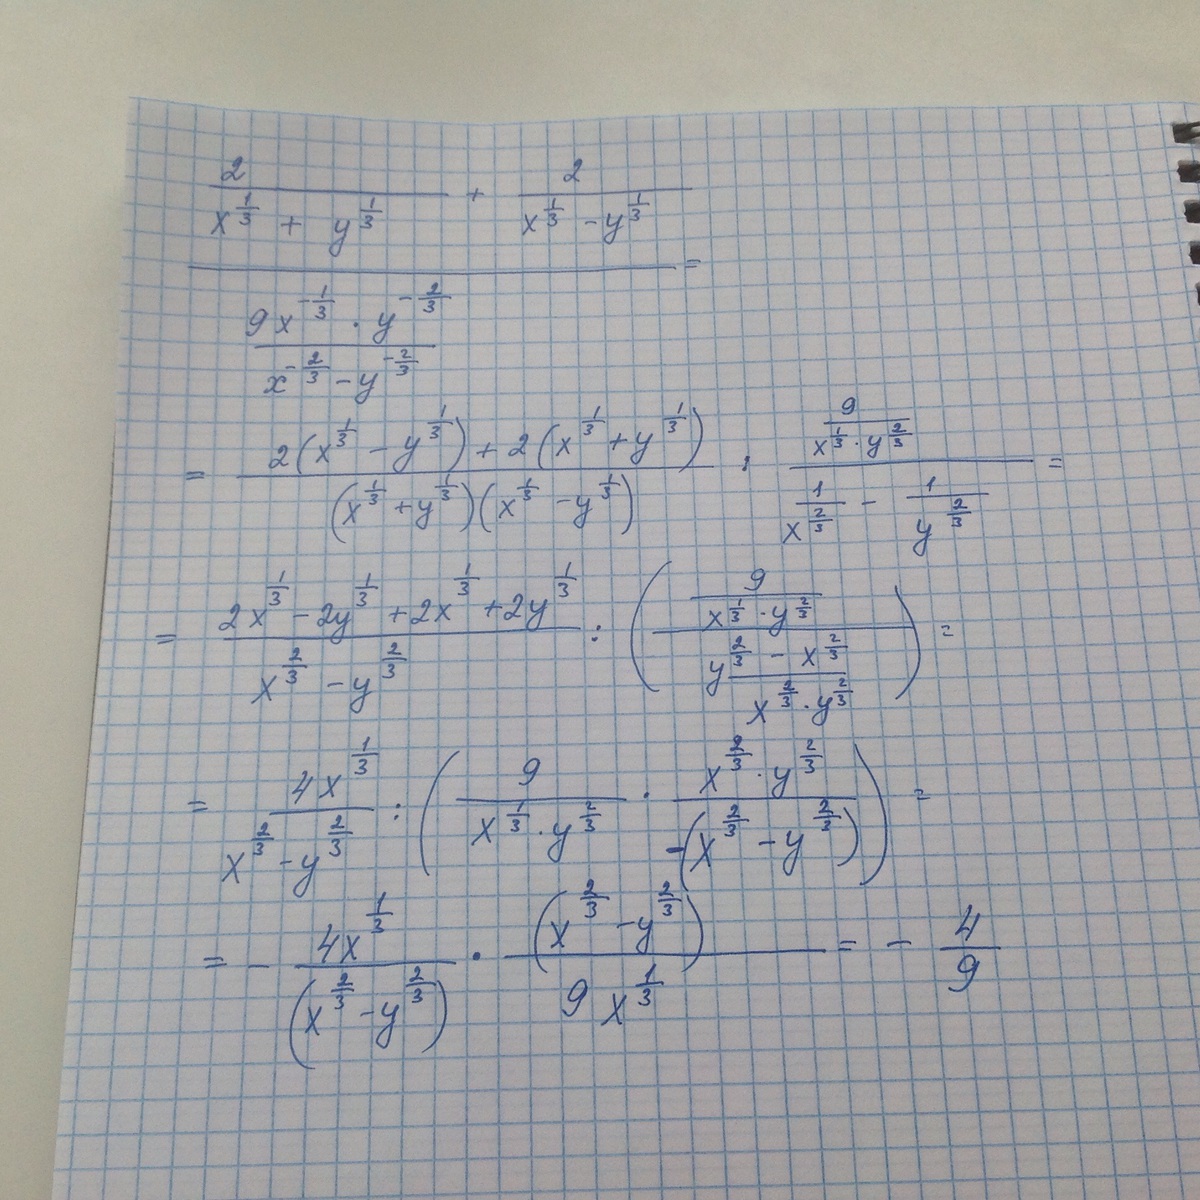 (2/(x^(1/3) + y^(1/3)) + 2/(x^(1/3) - y^(1/3))) / ((9x^(-1/3) · y^(-2/3))/(x^(-2/3) - y^(-2/3))) =
= (2(x^(1/3) - y^(1/3)) + 2(x^(1/3) + y^(1/3)))/((x^(1/3) + y^(1/3))(x^(1/3) - y^(1/3))) : (9/(x^(1/3) · y^(2/3)))/(1/x^(2/3) - 1/y^(2/3)) =
= (2x^(1/3) - 2y^(1/3) + 2x^(1/3) + 2y^(1/3))/(x^(2/3) - y^(2/3)) : ((9/(x^(1/3) · y^(2/3)))/((y^(2/3) - x^(2/3))/(x^(2/3) · y^(2/3)))) =
= 4x^(1/3)/(x^(2/3) - y^(2/3)) : (9/(x^(1/3) · y^(2/3)) · (x^(2/3) · y^(2/3))/(-(x^(2/3) - y^(2/3)))) =
= - 4x^(1/3)/(x^(2/3) - y^(2/3)) · (x^(2/3) - y^(2/3))/(9x^(1/3)) = - 4/9